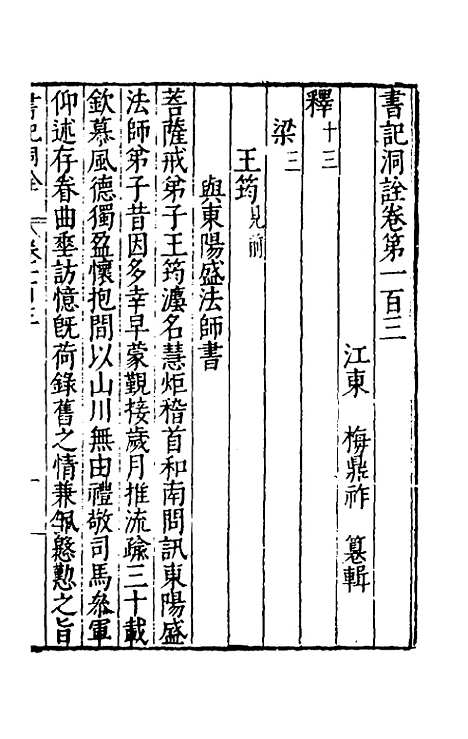 書記洞詮卷第一百三
江東 梅鼎祚 纂輯
釋十三
梁三
王筠見前
與東陽盛法師書
菩薩戒弟子王筠瀍名慧炬稽首和南問訊東陽盛
法師弟子昔因多幸早蒙覯接歲月推流踰三十載
欽慕風德獨盈懷抱間以山川無由禮敬司馬叅軍
仰述存眷曲垂訪憶旣荷錄舊之情兼佩慇懃之旨
書記洞詮 卷一百三 一